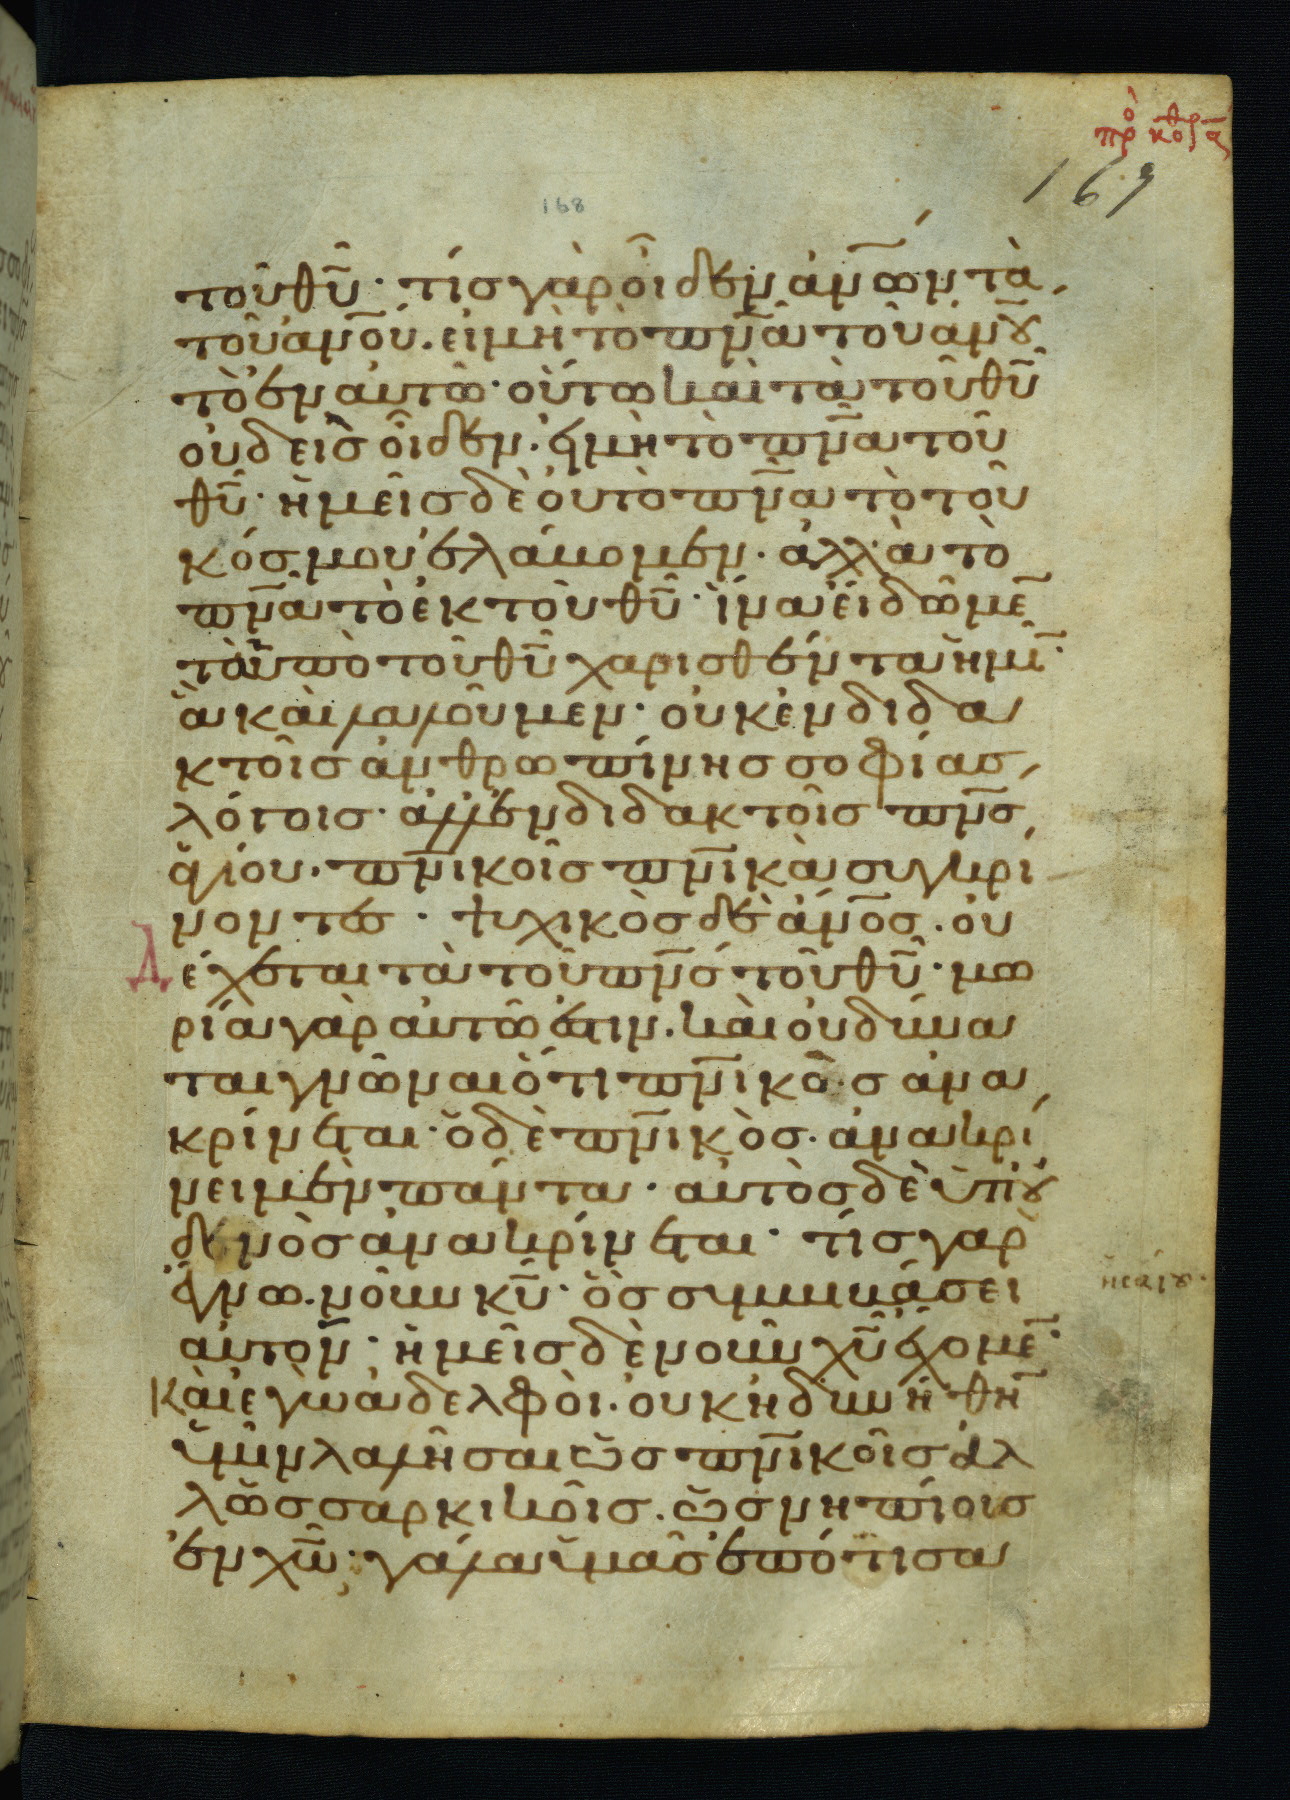 πρὸ κορθα
169
168
τοῦ θῦ· τίς γὰρ οἶδεν ἀνων τὰ
τοῦ ἀνου. εἰ μὴ τὸ πνα τοῦ ἀνου
τὸ ἐν αὐτῶ· οὕτω καὶ τὰ τοῦ θῦ
οὐδεὶς οἶδεν· εἰ μὴ τὸ πνα τοῦ
θῦ· ἡμεῖς δὲ οὐ τὸ πνα τὸ τοῦ
κόσμου ἐλάβομεν· ἀλλὰ τὸ
πνα τὸ ἐκ τοῦ θῦ· ἵνα εἰδῶμε̄
τὰ ὑπὸ τοῦ θῦ χαρισθέντα ἡμῖ̄·
ἃ καὶ λαλοῦμεν· οὐκ ἐν διδα
κτοῖς ἀνθρωπίνης σοφίας
λόγοις· ἀλλ' ἐν διδακτοῖς πνς
ἁγίου· πνικοῖς πνικὰ συγκρί
νοντες· ψυχικὸς δὲ ἄνος· οὐ
δέχεται τὰ τοῦ πνς τοῦ θῦ· μω
ρία γὰρ αὐτῶ ἐστιν· καὶ οὐ δύνα
ται γνῶναι ὅτι πνικῶς ἀνα
κρίνεται· ὁ δὲ πνικὸς· ἀνακρί
νει μὲν πάντα· αὐτὸς δὲ ὑπ' οὐ
δενὸς ἀνακρίνεται· τίς γὰρ
ἔγνω νοῦν κῦ· ὃς συμβιβάσει
ἡσαΐου
αὐτόν· ἡμεῖς δὲ νοῦν χῦ ἔχομε̄·
Καὶ ἐγὼ ἀδελφοὶ· οὐκ ἠδυνήθη̄
ὑμῖν λαλῆσαι ὡς πνικοῖς ἀλ
λ' ὡς σαρκικοῖς· ὡς νηπίοις
ἐν χῶ· γάλα ὑμᾶς ἐπότισα